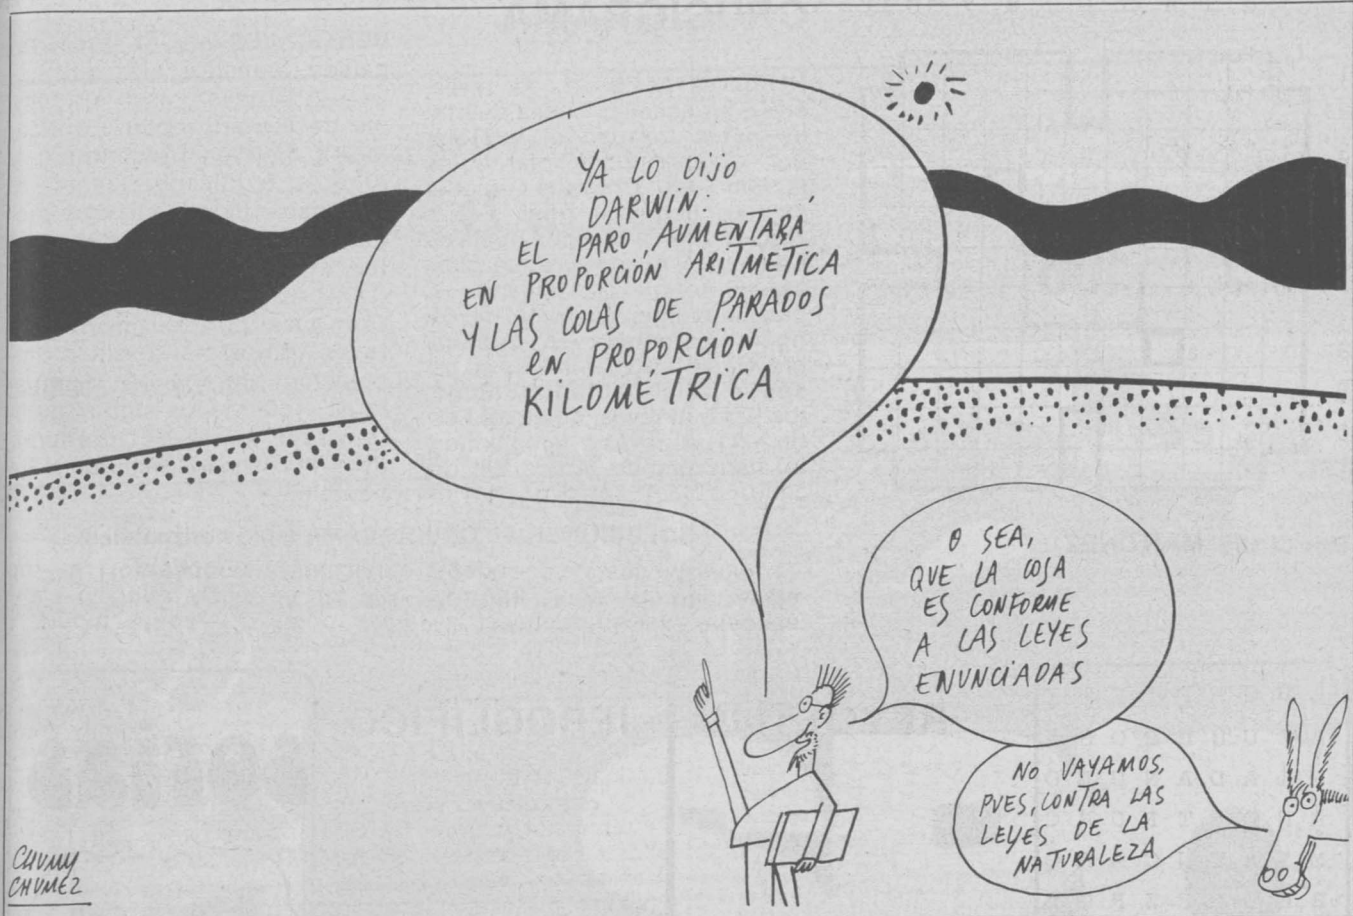 YA LO DIJO
DARWIN:
EL PARO, AUMENTARÁ
EN PROPORCIÓN ARITMÉTICA
Y LAS COLAS DE PARADOS
EN PROPORCIÓN
KILOMÉTRICA
O SEA,
QUE LA COSA
ES CONFORME
A LAS LEYES
ENUNCIADAS
NO VAYAMOS,
PUES, CONTRA LAS
LEYES DE LA
NATURALEZA
CHUMY
CHUMEZ